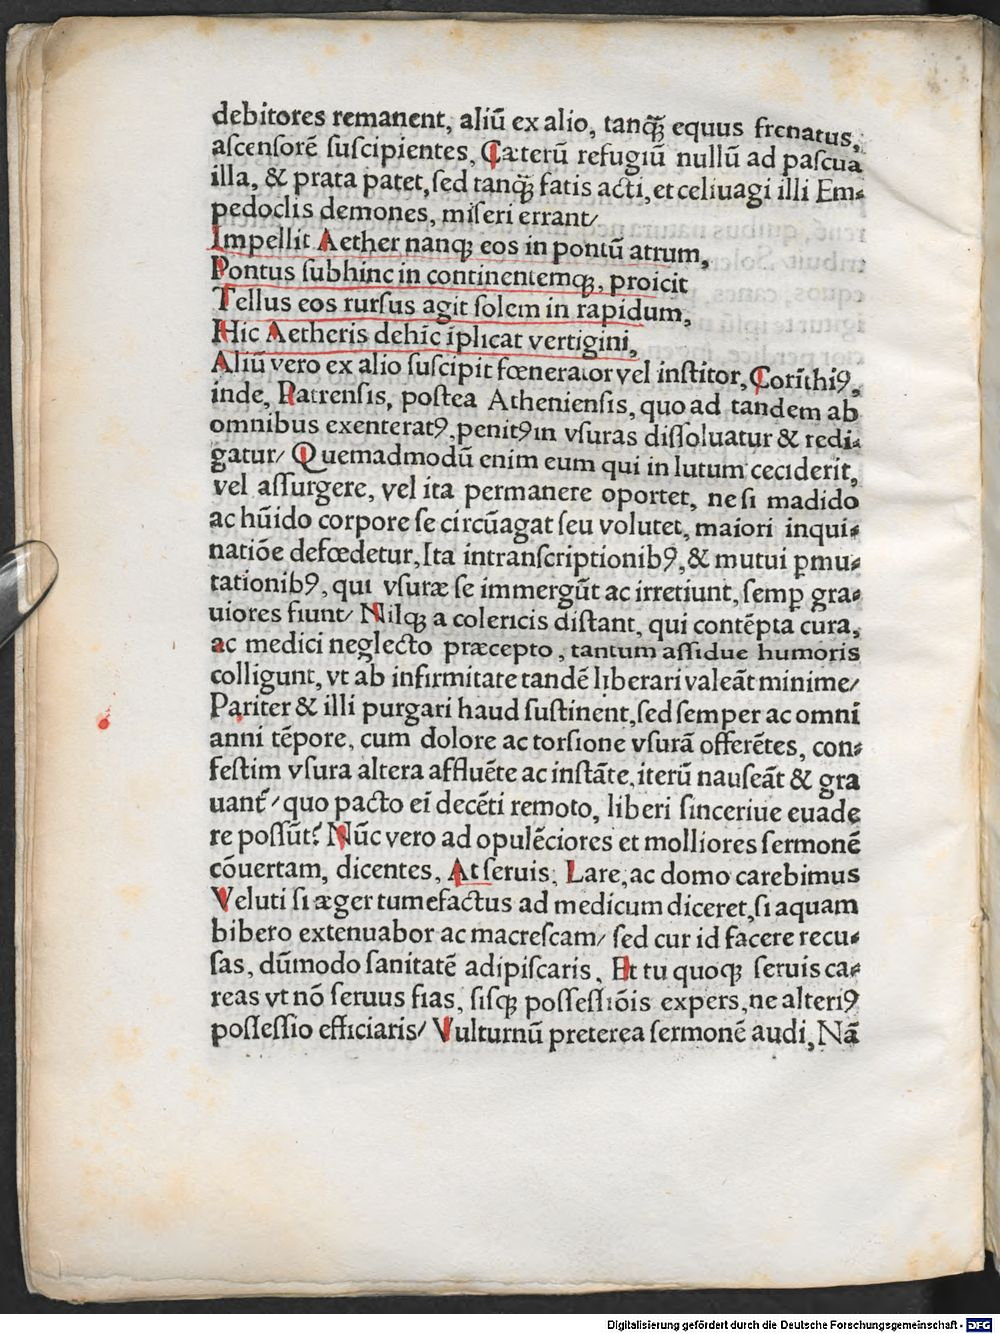 debitores remanent, aliū ex alio, tanq̄ȝ equus frenatus,
ascensorē suscipientes, Cæterū refugiū nullū ad pascua
illa, & prata patet, sed tanq̄ȝ fatis acti, et celiuagi illi Em⸗
pedoclis demones, miseri errant/
Impellit Aether nanqȝ eos in pontū atrum,
Pontus subhinc in continentemqȝ, proicit
Tellus eos rursus agit solem in rapidum,
Hic Aetheris dehīc īplicat vertigini,
Aliū vero ex alio suscipit fœnerator vel institor, Corīthiꝰ,
inde, Patrensis, postea Atheniensis, quo ad tandem ab
omnibus exenteratꝰ, penitꝰ in vsuras dissoluatur & redi⸗
gatur/ Quemadmodū enim eum qui in lutum ceciderit,
vel assurgere, vel ita permanere oportet, ne si madido
ac hūido corpore se circūagat seu volutet, maiori inqui⸗
natiōe defœdetur, Ita intranscriptionibꝰ, & mutui ꝑmu⸗
tationibꝰ, qui vsuræ se immergūt ac irretiunt, semꝑ gra⸗
uiores fiunt/ Nilqȝ a colericis distant, qui contēpta cura,
ac medici neglecto præcepto, tantum assidue humoris
colligunt, vt ab infirmitate tandē liberari valeāt minime/
Pariter & illi purgari haud sustinent, sed semper ac omni
anni tēpore, cum dolore ac torsione vsurā offerētes, con⸗
festim vsura altera affluēte ac instāte, iterū nauseāt & gra
uant᷑/ quo pacto ei decēti remoto, liberi sinceriue euade
re possūt? Nūc vero ad opulēciores et molliores sermonē
cōuertam, dicentes, At seruis, Lare, ac domo carebimus
Veluti si æger tumefactus ad medicum diceret, si aquam
bibero extenuabor ac macrescam/ sed cur id facere recu⸗
sas, dūmodo sanitatē adipiscaris, Et tu quoqȝ seruis ca⸗
reas vt nō seruus fias, sisqȝ possessiōis expers, ne alteriꝰ
possessio efficiaris/ Vulturnū preterea sermonē audi, Nā
Digitalisierung gefördert durch die Deutsche Forschungsgemeinschaft - DFG